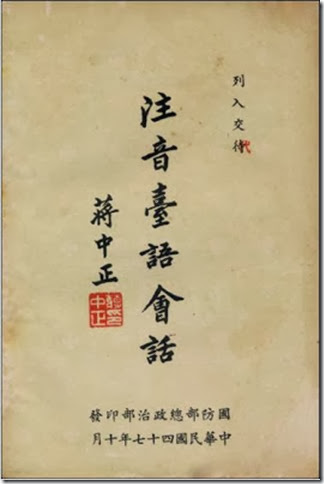 列入交待
代
注音臺語會話
蔣中正
中正
國防部總政治部印發
中華民國四十七年十月